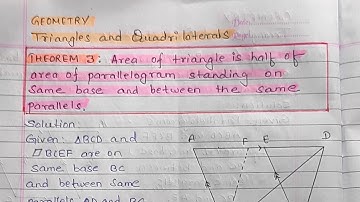 GEOMETRY
Triangles and Quadrilaterals
THEOREM 3: Area of triangle is half of
area of parallelogram standing on
same base and between the same
parallels.
Solution:
Given: ΔBCD and
▱ BCEF are on
same base BC
and between same
parallels AD and BC
A F E D